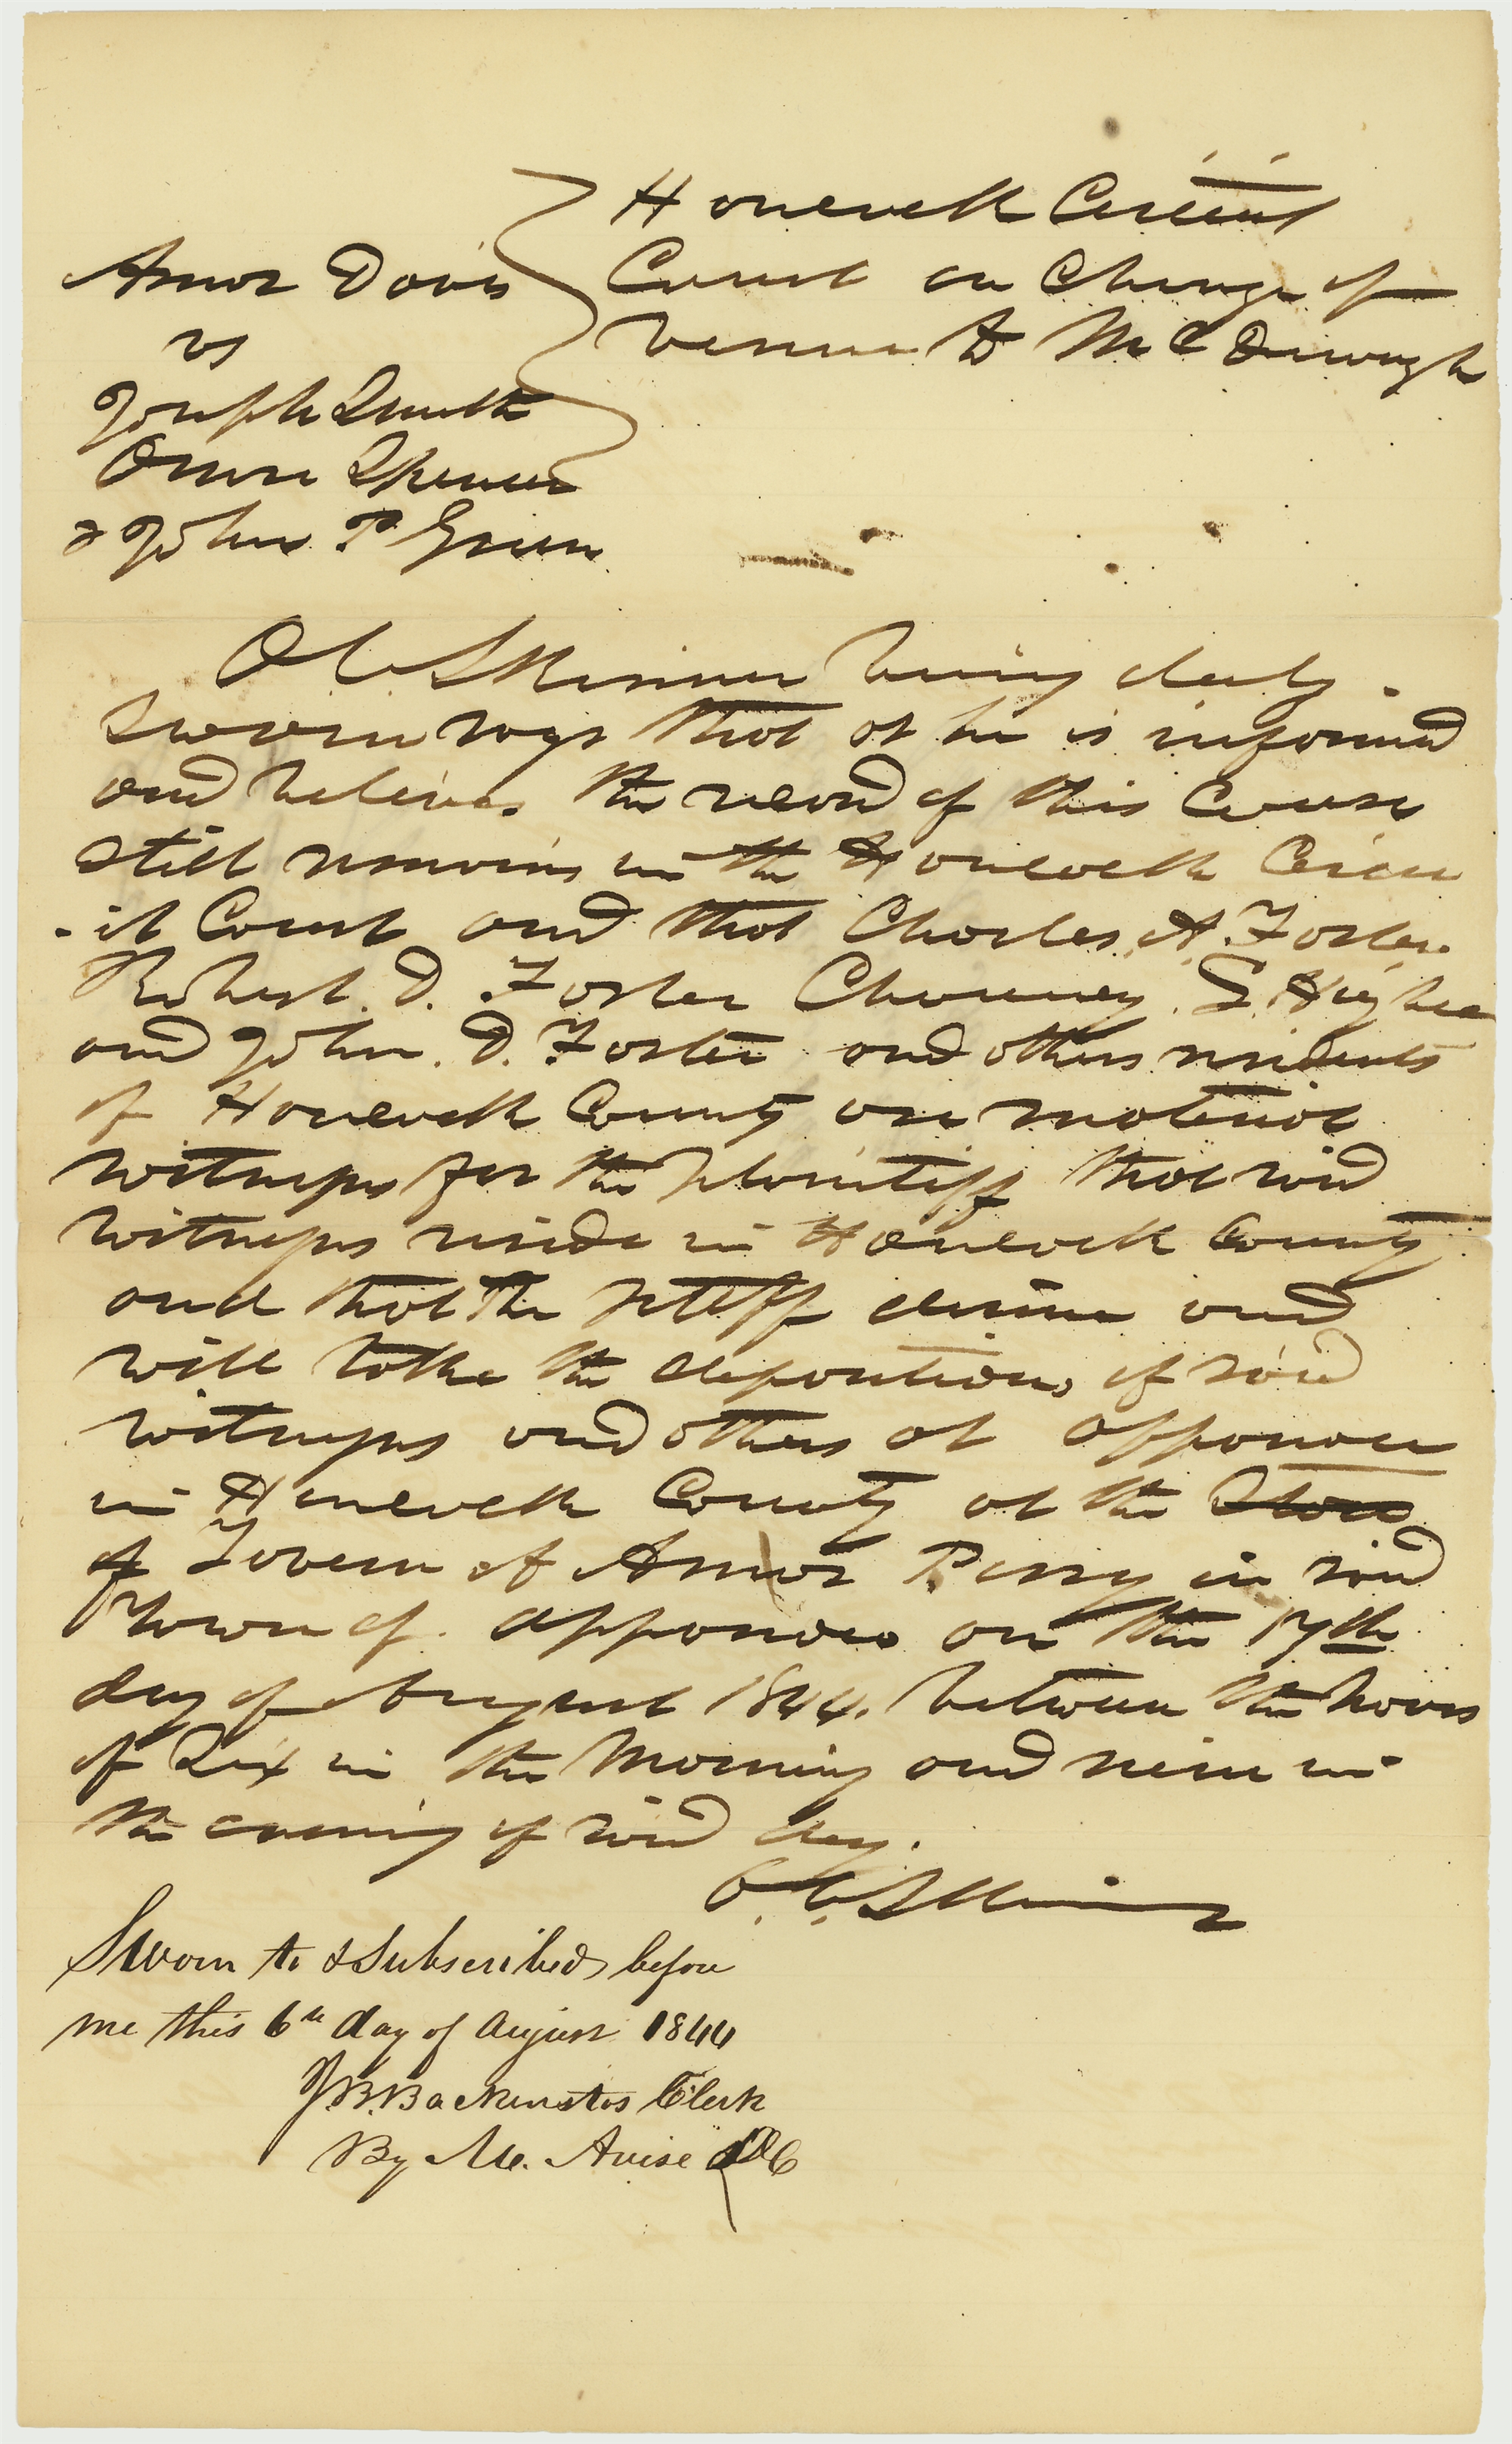 Hancock Circuit
Amos Davis Court on Change of
vs venue to McDonough
Joseph Smith
Orson Spencer
& John P Green
O C Skinner being duly
sworn says that as he is informed
and believes the record of this Cause
still remains in the Hancock Circu
-it Court and that Charles A. Foster
Robert. D. Foster Chauncey. L. Higbee
and John. D. Foster and others residents
of Hancock County are material
witnesses for the plaintiff that said
witnesses reside in Hancock County
and that the pltff desires and
will take the depositions of said
witnesses and others at appanoose
in Hancock County at the Store
of Tavern of Amos Perry in said
Town of. appanoose on the 17th
day of August 1844. between the hours
of Six in the Morning and nine in
the evening of said day.
O. C. Skinner
Sworn to & Subscribed before
me this 6th day of August 1844
J.B. Backenstos Clerk
By M. Avise DC